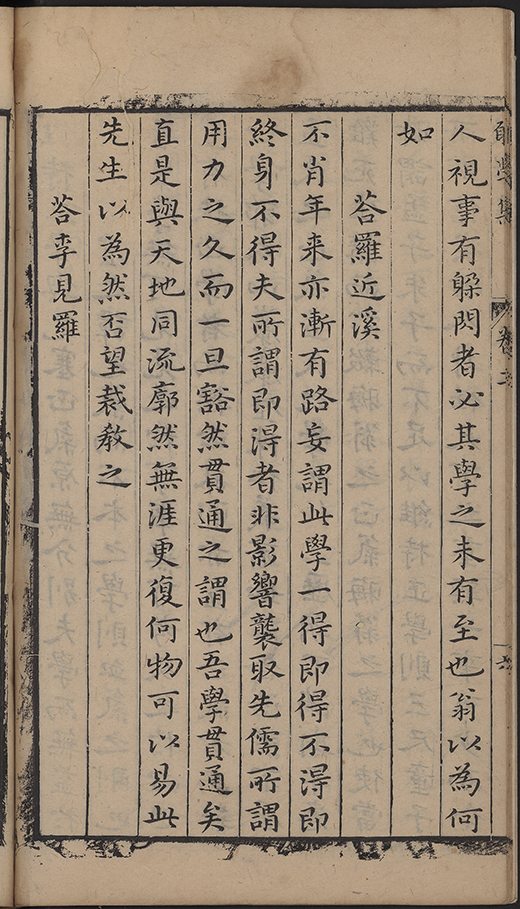 人視事有躱閃者必其學之未有至也翁以為何
如
荅羅近溪
不肖年来亦漸有路妄謂此學一得即得不得即
終身不得夫所謂即得者非影響襲取先儒所謂
用力之久而一旦豁然貫通之謂也吾學貫通矣
直是與天地同流廓然無涯更復何物可以易此
先生以為然否望裁教之
荅李見羅